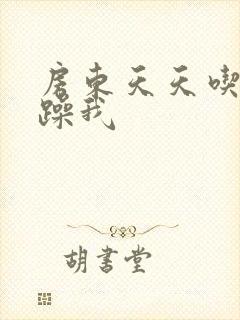 房東天天喫
躁我
胡書堂